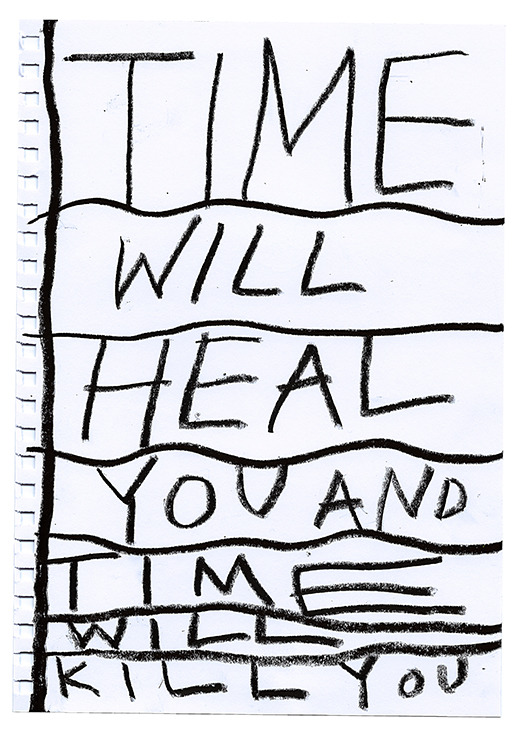 TIME
WILL
HEAL
YOU AND
TIME
WILL
KILL YOU